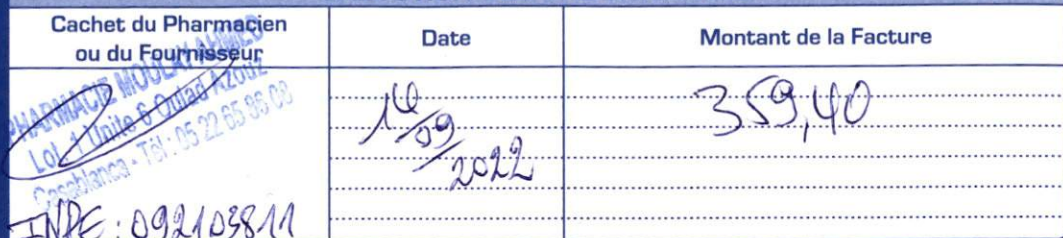 Cachet du Pharmacien
ou du Fournisseur
Date
Montant de la Facture
PHARMACIE MOULAY AHMED
Lot 1 Unite 6 Oulad Azouz
Casablanca - Tél: 05 22 65 36 08
INPE: 092103811
16/09/2022
359,40